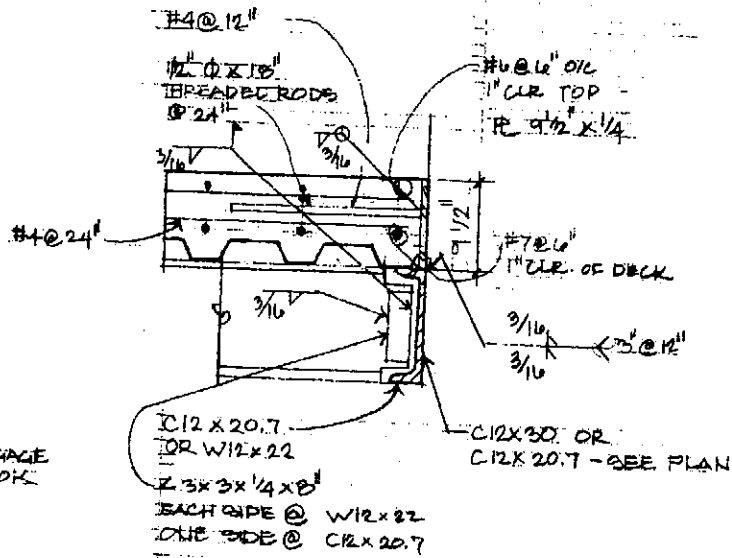 #4@12"
1/2" Ø X 18"
THREADED RODS
@ 24"
3/16
3/16
#6@6" O/C
1" CLR TOP
PL 9 1/2" X 1/4
9 1/2"
#4@24"
#7@6"
1" CLR. OF DECK
3/16
3/16
3/16
3"@12"
C12 X 20.7
OR W12X22
C12X30 OR
C12X 20.7 - SEE PLAN
GAGE
OK
∠ 3X3X1/4X8"
EACH SIDE @ W12X22
ONE SIDE @ C12X20.7